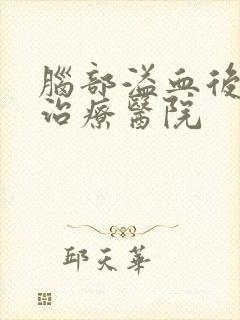 腦部溢血後
治療醫院
邱天華